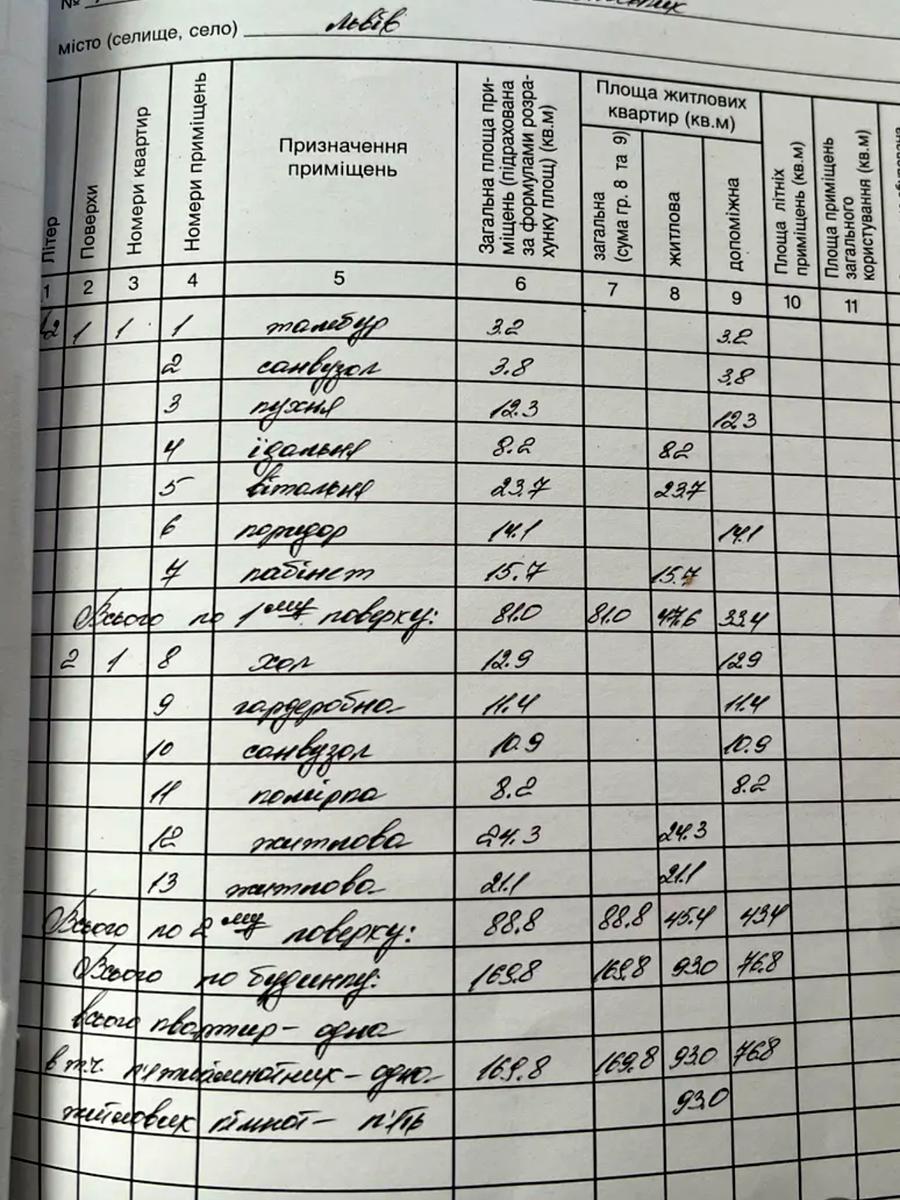 №
місто (селище, село) Львів
Літер
Поверхи
Номери квартир
Номери приміщень
Призначення
приміщень
Загальна площа при-
міщень (підрахована
за формулами розра-
хунку площ) (кв.м)
Площа житлових
квартир (кв.м)
загальна
(сума гр. 8 та 9)
житлова
допоміжна
Площа літніх
приміщень (кв.м)
Площа приміщень
загального
користування (кв.м)
1 2 3 4 5 6 7 8 9 10 11
1 1 1 тамбур 3.2 3.2
2 санвузол 3.8 3.8
3 кухня 12.3 12.3
4 їдальня 8.2 8.2
5 вітальня 23.7 23.7
6 коридор 14.1 14.1
7 кабінет 15.7 15.7
Всього по 1му поверху: 81.0 81.0 47.6 33.4
2 1 8 хол 12.9 12.9
9 гардеробна 11.4 11.4
10 санвузол 10.9 10.9
11 комірка 8.2 8.2
12 житлова 24.3 24.3
13 житлова 21.1 21.1
Всього по 2му поверху: 88.8 88.8 45.4 43.4
Всього по будинку: 169.8 169.8 93.0 76.8
всього квартир – одна
в т.ч. п'ятикімнатних – одна 169.8 169.8 93.0 76.8
житлових кімнат – п'ять 93.0